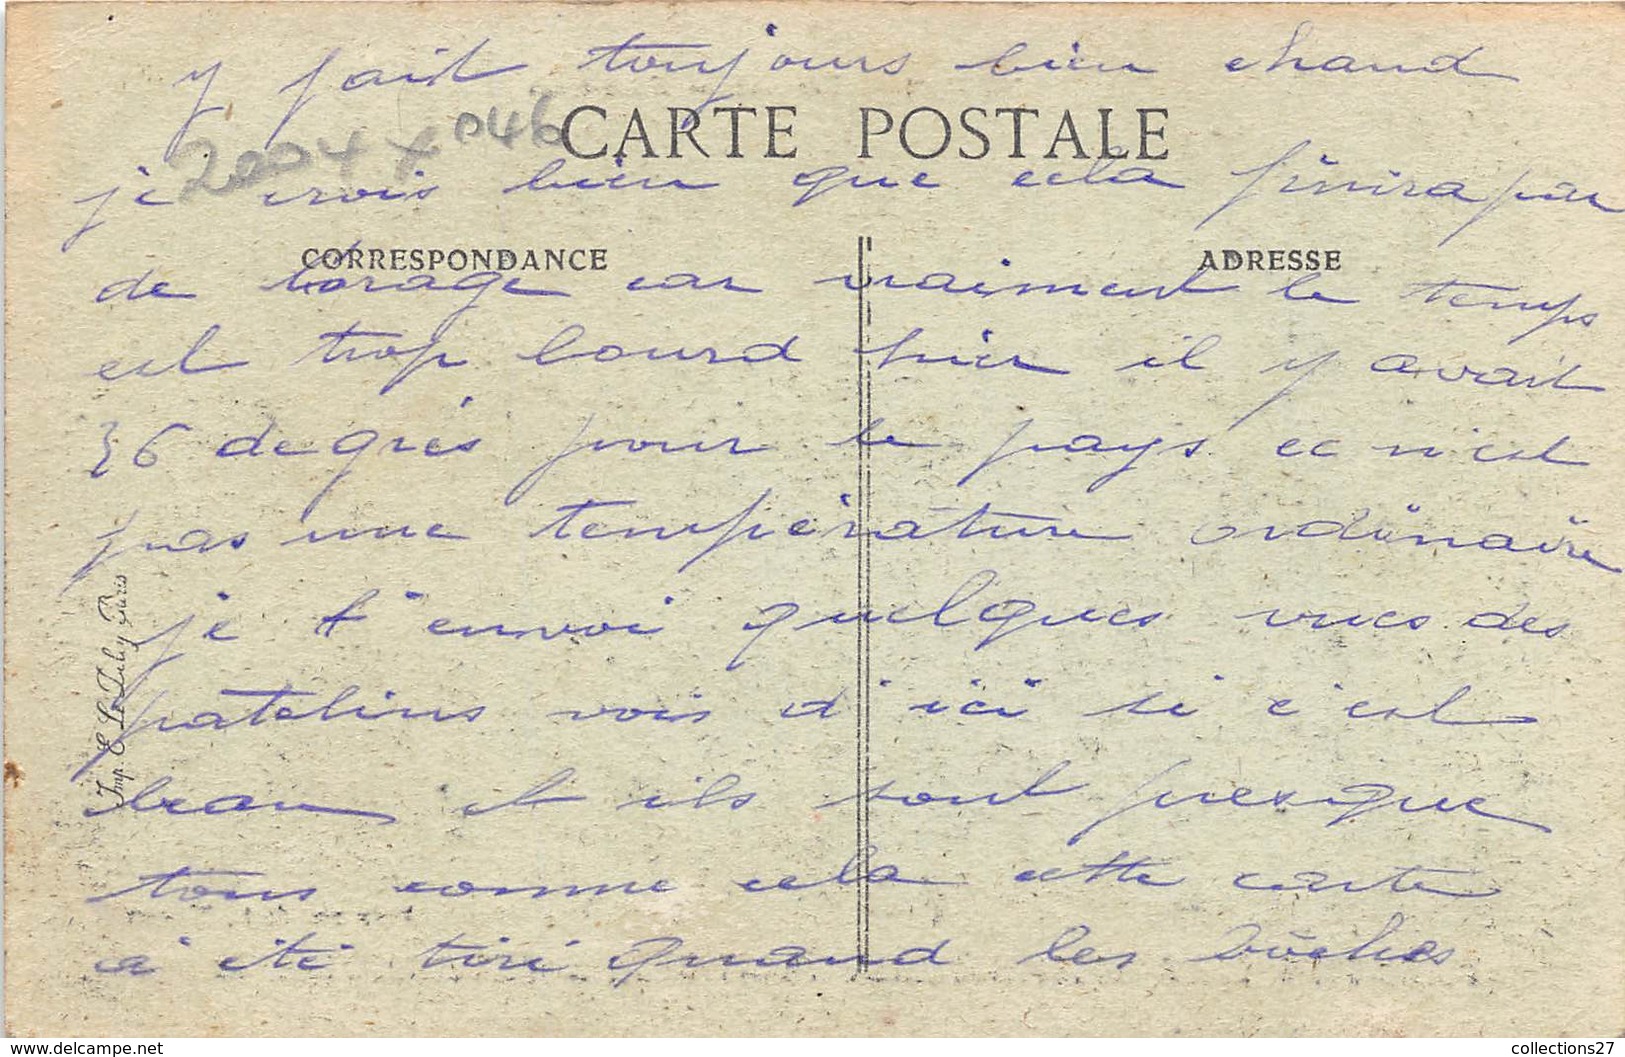 y fait toujours bien chaud
2004 x 046
CARTE POSTALE
je crois bien que cela finira par
CORRESPONDANCE
ADRESSE
de l'orage car vraiment le temps
est trop lourd hier il y avait
36 degrés pour le pays ce n'est
pas une température ordinaire
je t'envoi quelques vues des
patelins vois d'ici si c'est
beau et ils sont presque
tous comme cela cette carte
à été tiré quand les bôches
Imp. E. Le Deley Paris
www.delcampe.net
collections27